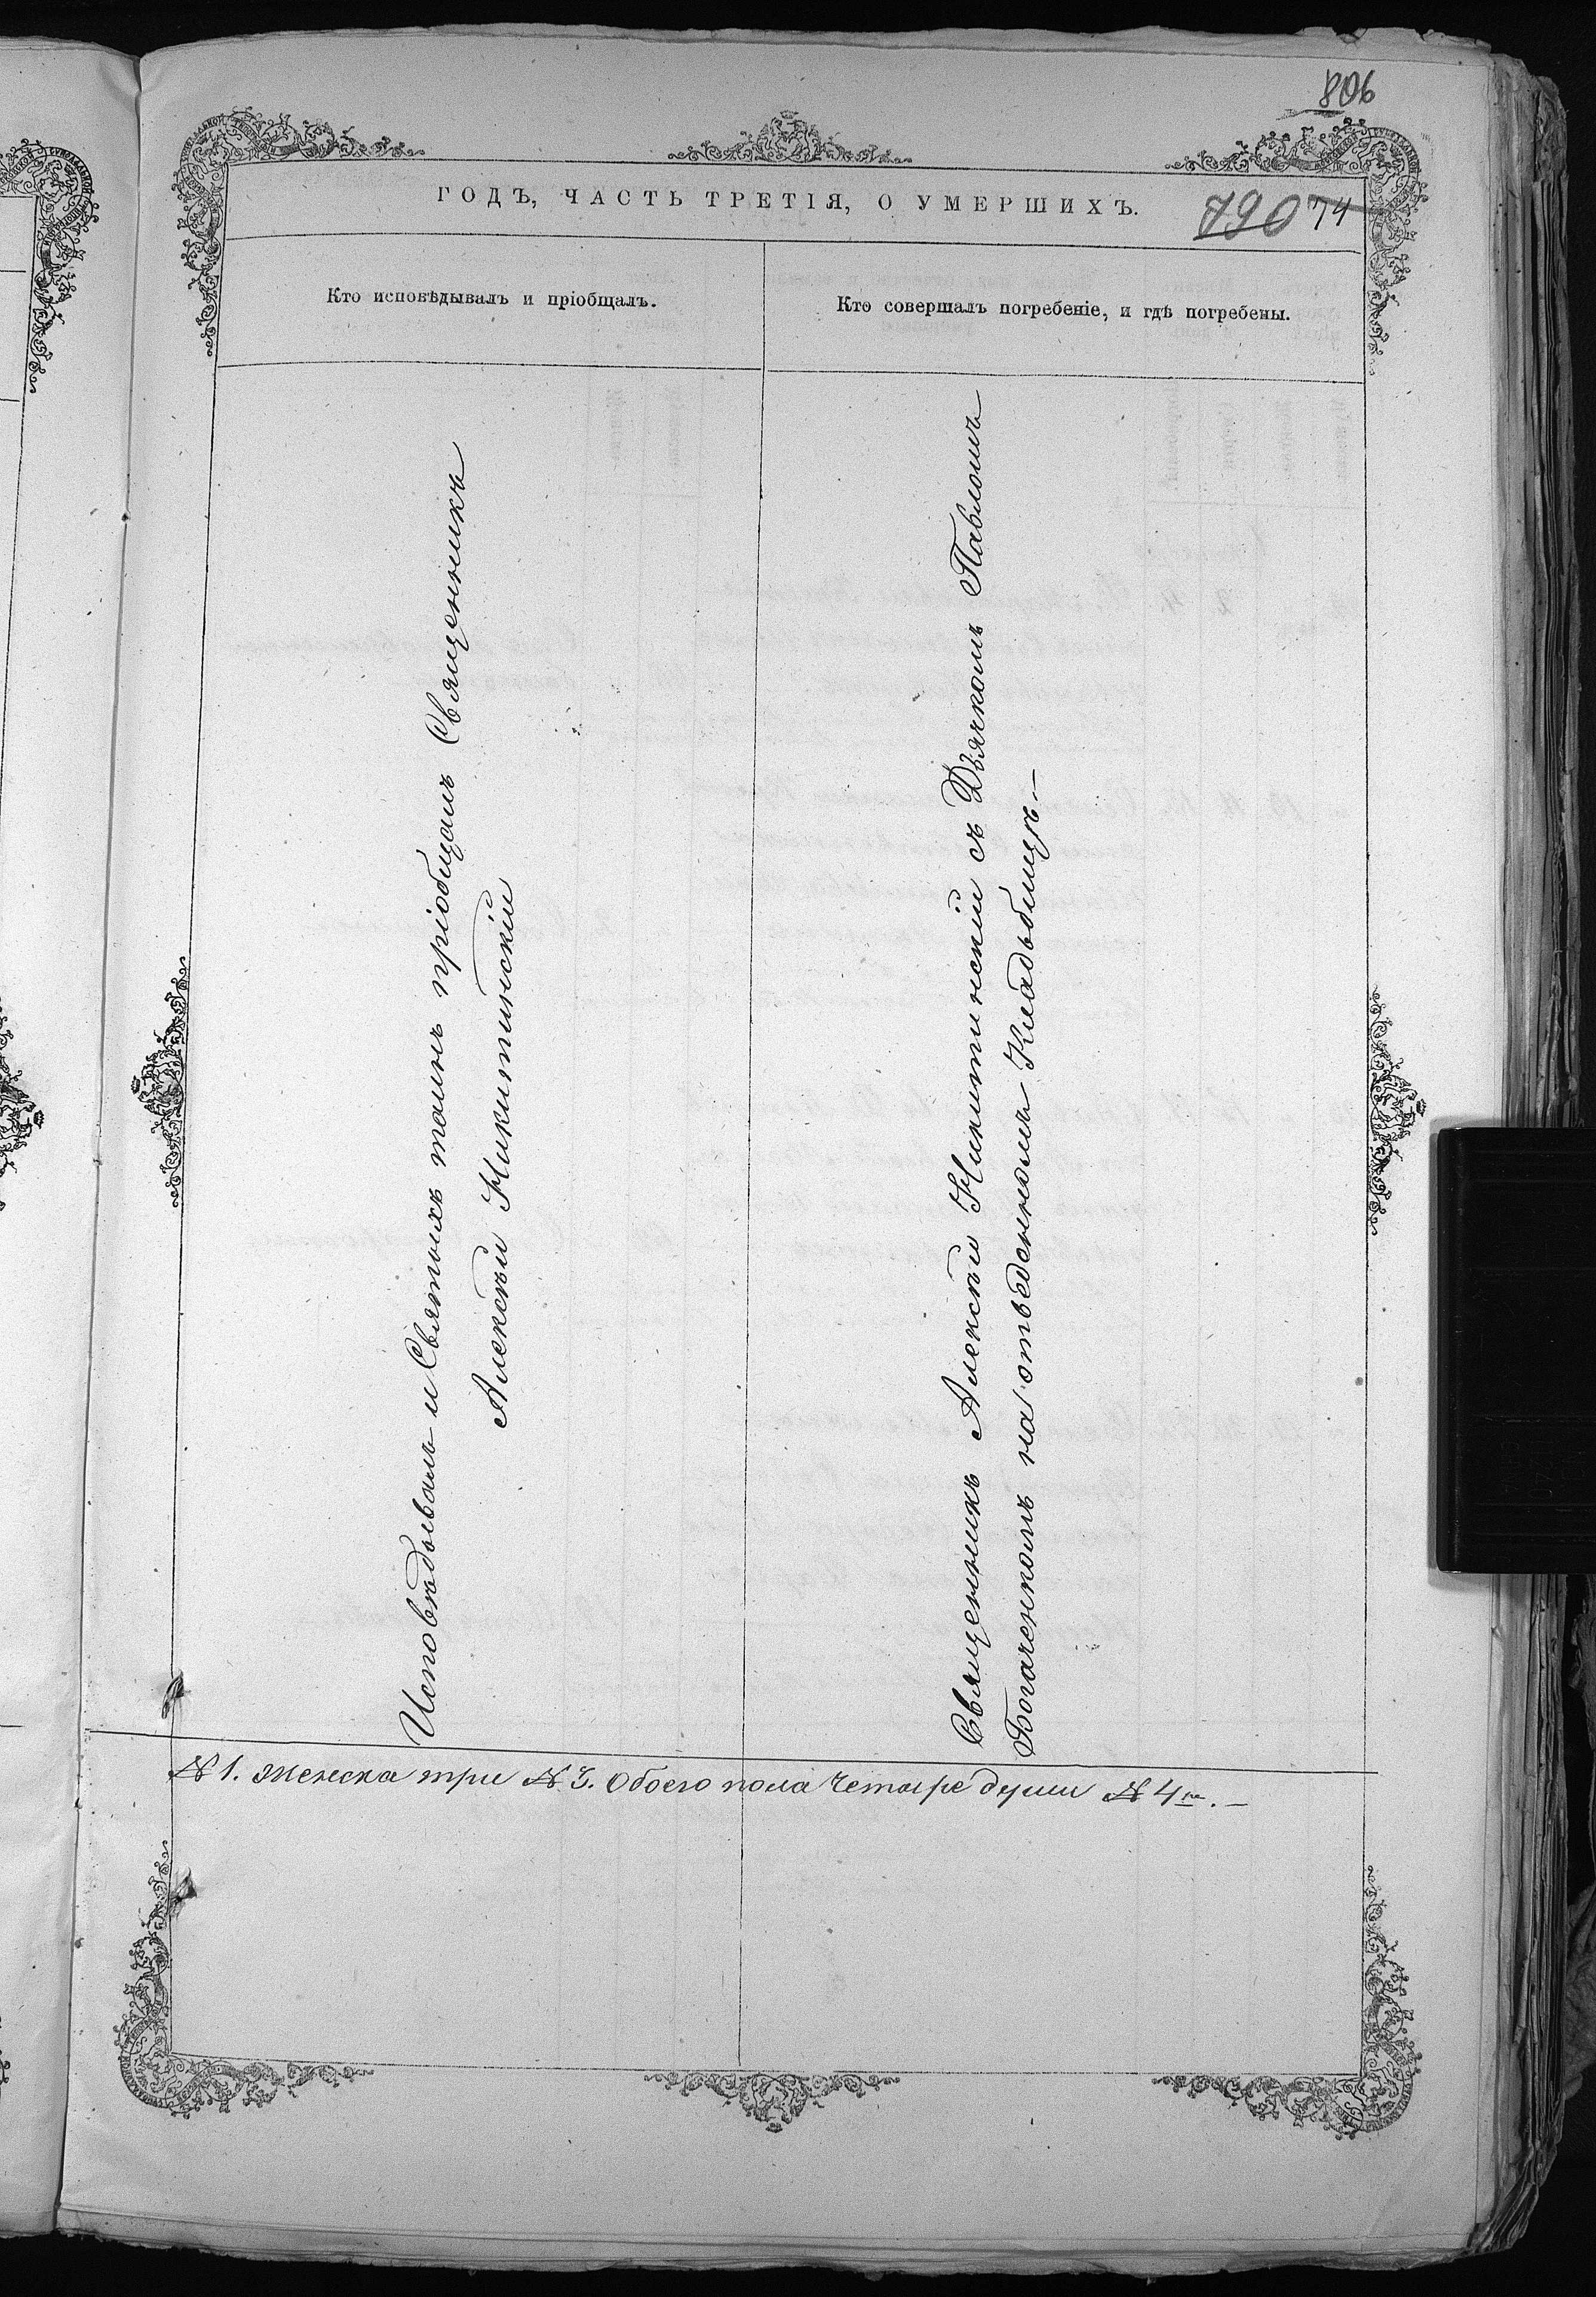 806
ГОДЪ, ЧАСТЬ ТРЕТІЯ, О УМЕРШИХЪ.
790 74
Кто исповѣдывалъ и пріобщалъ.
Кто совершалъ погребеніе, и гдѣ погребены.
Исповѣдывалъ и Святыхъ таинъ пріобщалъ Священникъ
Алексѣй Никитинскій
Священникъ Алексѣй Никитинскій съ Дьячкомъ Павломъ
Богаченкомъ на отведенномъ Кладьбищѣ.—
№ 1. женска три № 3. Обоего пола Четыре души № 4ре.—